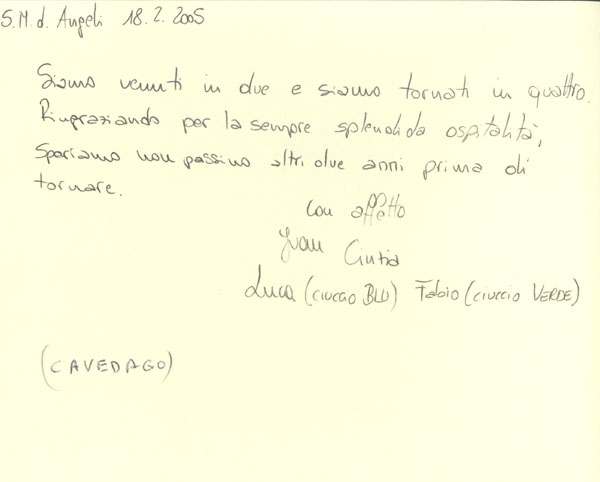 S.M.d. Angeli 18.2.2005
Siamo venuti in due e siamo tornati in quattro.
Ringraziando per la sempre splendida ospitalità,
Speriamo non passino altri due anni prima di
tornare.
Con affetto
Ivan Cintia
Luca (ciuccio BLU) Fabio (ciuccio VERDE)
(CAVEDAGO)